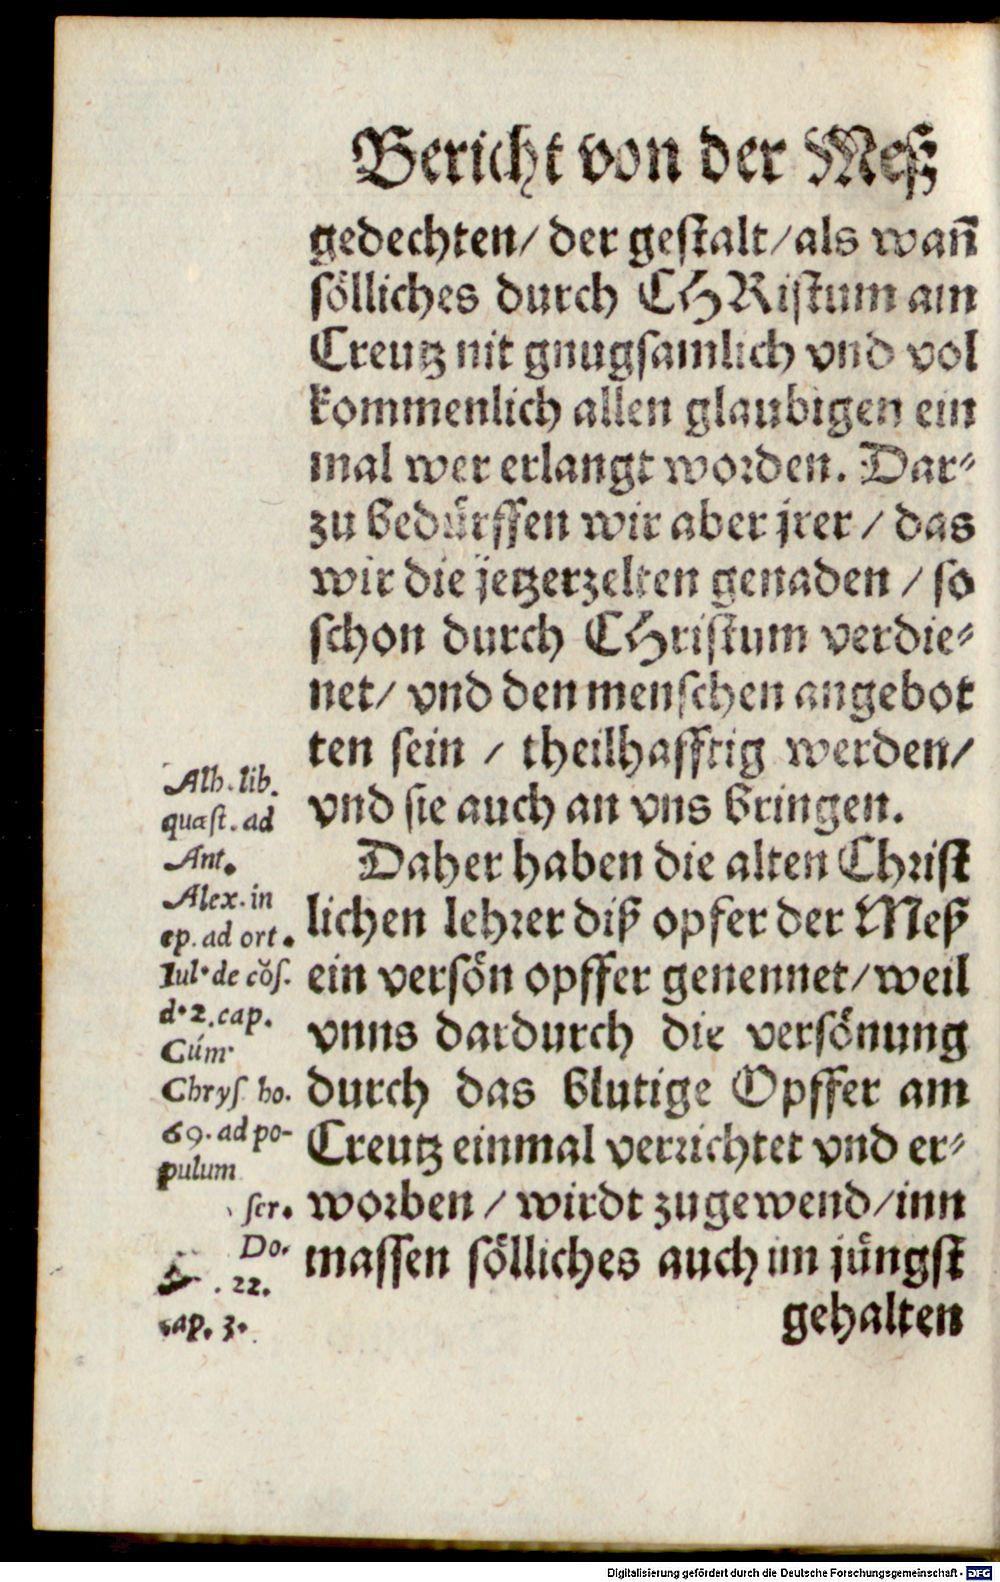 Bericht von der Meß
gedechten/ der gestalt/als wañ
sölliches durch CHRistum am
Creutz nit gnugsamlich vnd vol
kommenlich allen glaubigen ein
mal wer erlangt worden. Dar⸗
zu bedürffen wir aber jrer / das
wir die jetzerzelten genaden / so
schon durch CHristum verdie⸗
net/ vnd den menschen angebot
ten sein / theilhafftig werden/
vnd sie auch an vns bringen.
Daher haben die alten Christ
lichen lehrer diß opfer der Meß
ein versön opffer genennet/weil
vnns dardurch die versönung
durch das blutige Opffer am
Creutz einmal verrichtet vnd er⸗
worben / wirdt zugewend/inn
massen sölliches auch im jüngst
gehalten
Ath. lib.
quæst. ad
Ant.
Alex. in
ep. ad ort.
Iul. de cõs.
d. 2. cap.
Cúm
Chrys ho.
69. ad po-
pulum
ser.
Do.
. 22.
cap. 3.
Digitalisierung gefördert durch die Deutsche Forschungsgemeinschaft - DFG